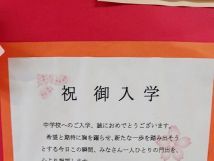 祝 御入学
中学校へのご入学、誠におめでとうございます。
希望と期待に胸を躍らせ、新たな一歩を踏み出そう
とする今日この瞬間、みなさん一人ひとりの門出を、
心より